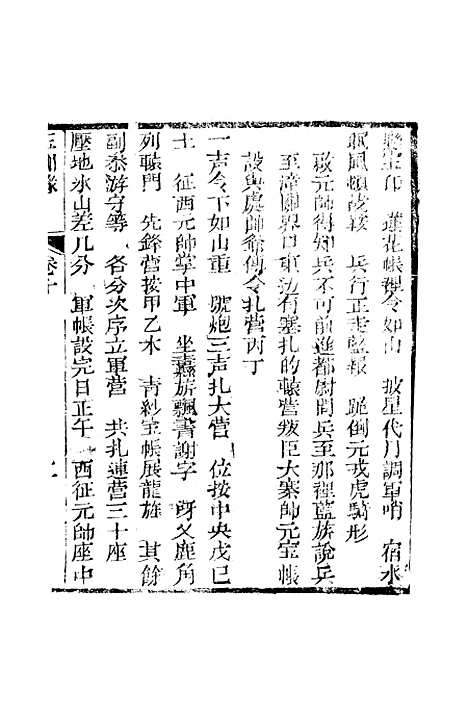 印 蓮花帳裡令如山 披星代月調軍哨 宿水
風頓設鞍 兵行正走藍報 跪倒元戎虎騎形
啟元師得知兵不可前進都尉問兵至那裡藍旗說兵
至潼關界口東边有寨扎的轅营叛臣大寨帥元宝帳
設與處師爺傳令扎营丙丁
一声令下如山重 號炮三声扎大营 位按中央戊己
土 征西元帥掌中軍 坐纛旂飄書謝字 叉鹿角
列轅門 先鋒营按甲乙木 青紗宝帳展龍旌 其餘
副叅游守等 各分次序立軍营 共扎連营三十座
壓地氷山差几分 軍帳設完日正午 西征元帥座中
卷十